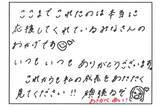 ここまでこれたのは本当に
応援してくれているみなさんの
おかげです
いつもいつもありがとうございます
これからも私の成長をあたたかく
見てください!! 頑張るぞ